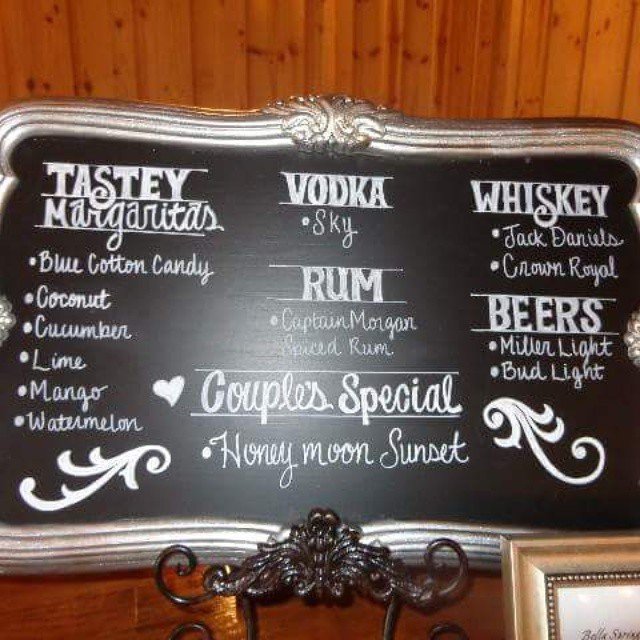 TASTEY
Margaritas
•Blue Cotton Candy
•Coconut
•Cucumber
•Lime
•Mango
•Watermelon
VODKA
•Sky
RUM
•Captain Morgan
Spiced Rum
WHISKEY
•Jack Daniels
•Crown Royal
BEERS
•Miller Light
•Bud Light
Couple's Special
•Honey moon Sunset
Bella